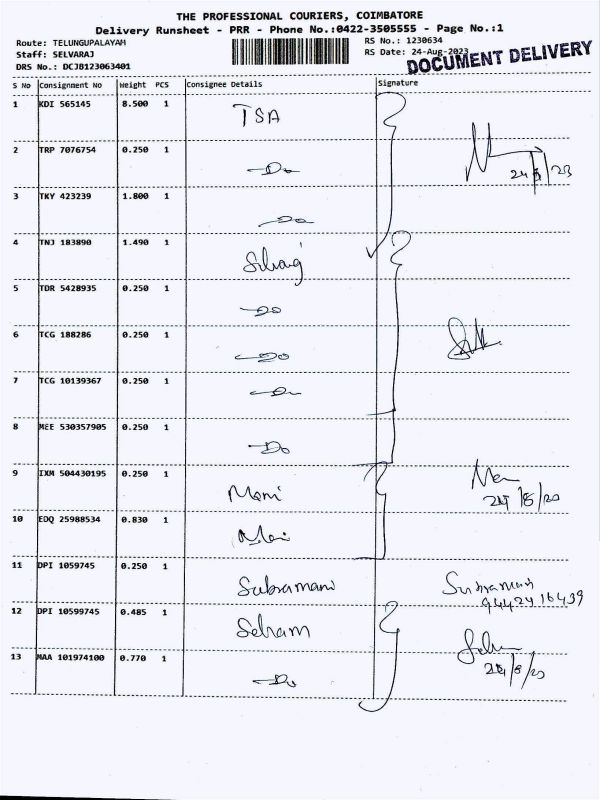 THE PROFESSIONAL COURIERS, COIMBATORE
Delivery Runsheet - PRR - Phone No.:0422-3505555 - Page No.:1
Route: TELUNGUPALAYAM
Staff: SELVARAJ
DRS No.: DCJB123063401
RS No.: 1230634
RS Date: 24-Aug-2023
DOCUMENT DELIVERY
S No Consignment No Weight PCS Consignee Details Signature
1 KDI 565145 8.500 1 TSA
2 TRP 7076754 0.250 1 Do
3 TKY 423239 1.800 1 Do
4 TNJ 183890 1.490 1
5 TDR 5428935 0.250 1 Do
6 TCG 188286 0.250 1 Do
7 TCG 10139367 0.250 1 Do
8 MEE 530357905 0.250 1 Do
9 IXM 504430195 0.250 1 Mani
10 EDQ 25988534 0.830 1 Mani
11 DPI 1059745 0.250 1 Subramani
12 DPI 10599745 0.485 1 Selvam
13 MAA 101974100 0.770 1 Do